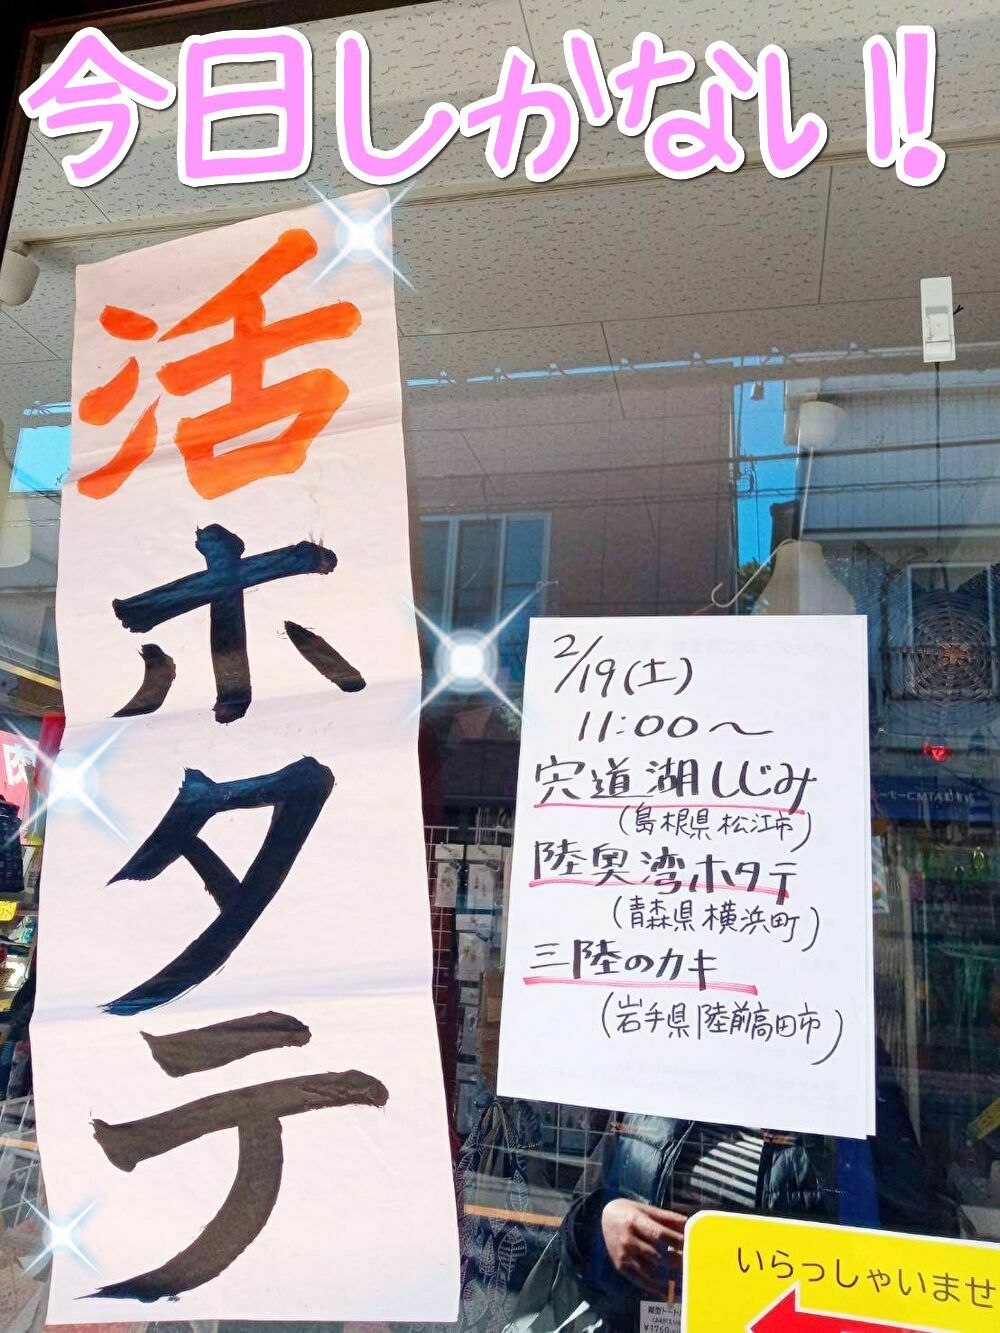 今日しかない!!
活ホタテ
2/19(土)
11:00〜
宍道湖しじみ
(島根県松江市)
陸奥湾ホタテ
(青森県横浜町)
三陸のカキ
(岩手県陸前高田市)
いらっしゃいませ
縦型トート
¥1760
肉